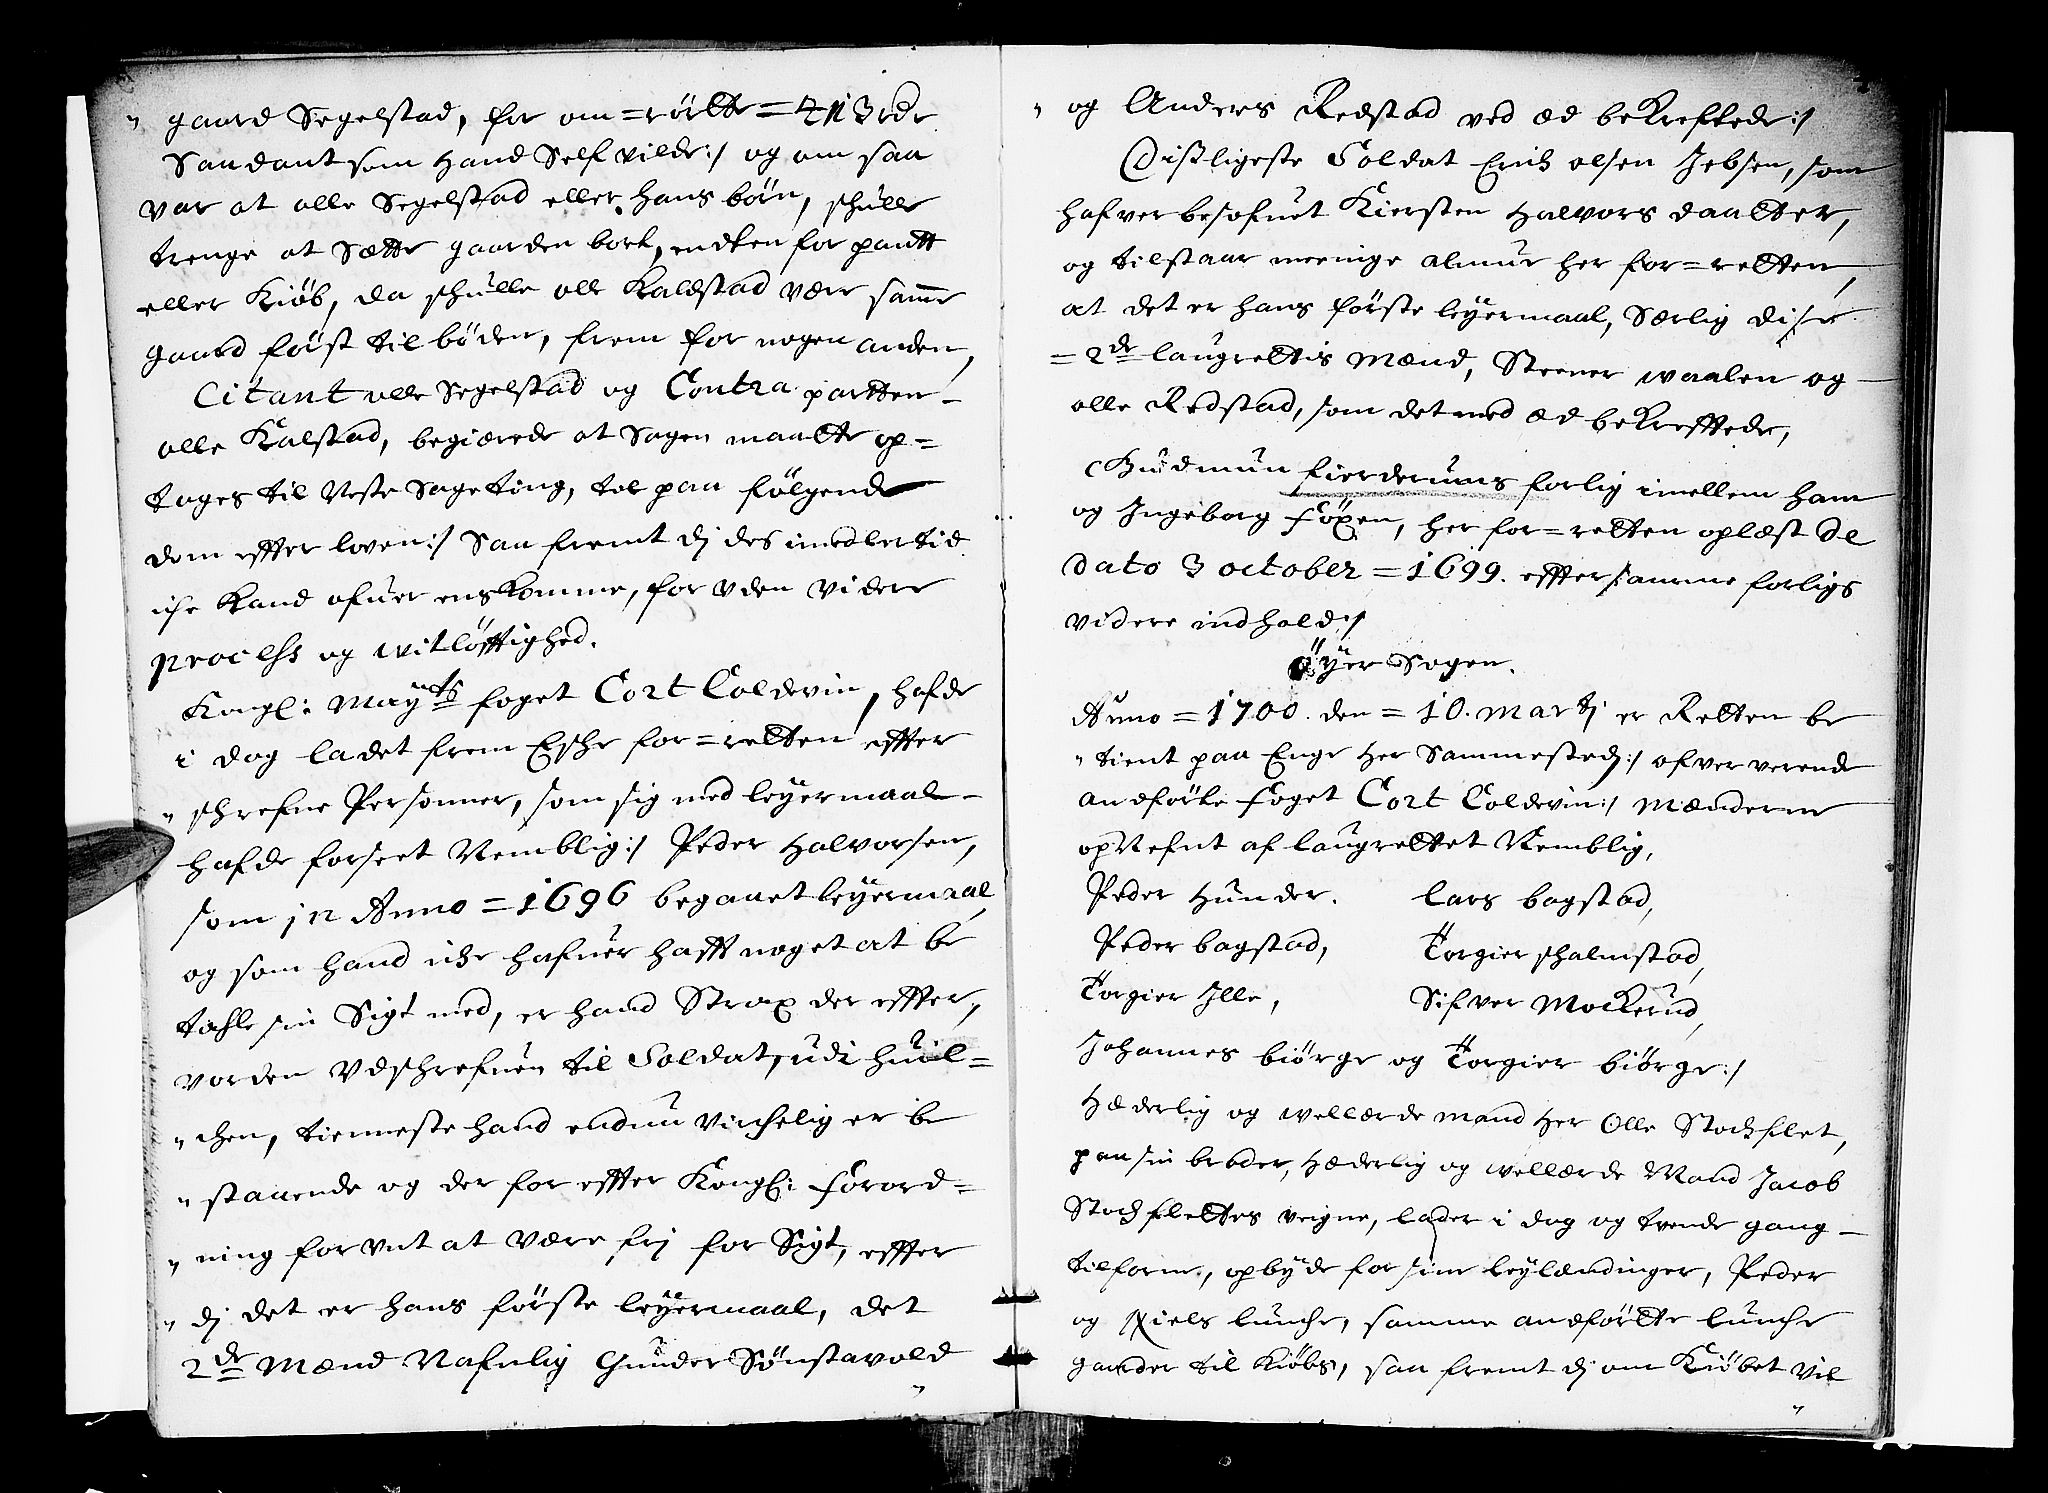 gaard Segelstad, for om=rörtte = 413 rdr
Saadant som hand Self vilde :/ og om saa
var at olle Segelstad eller hans börn, schulle
trenge at Sette gaarden bort, endten for pantt
eller Kiöb, da schulle olle Kalstad vere samme
gaard först tilböden, frem for nogen anden,
Citant olle Segelstad og Contra partten
olle Kalstad, begierede at Sagen maatte op=
tages til Neste Sage ting, tol paa fölgende
dom effter loven :/ Saa fremt dj des imedlertid
iche Kand ofuer ens Komme, for uden videre
process og witlöfftighed.
Kongl: Mayts foget Cort Coldevin, hafde
i dag ladet frem Esche for=retten effter
schrefne Personner, som sig med leyermaal
hafde forseet Nemblig :/ Peder Halvorsen,
som in Anno = 1696 begaaet leyermaal,
og som hand iche hafuer hafft noget at be
tahle sin Sigt med, er hand Strax der effter,
vorden Udschrefuen til Soldat, udi huil=
chen, tienneste hand endnu virchelig er be
staaende og der for effter Kongl: forord=
ning formt at Være frj for Sigt, effter
dj det er hans förste leyermaal, det
2de Mænd Nafnlig Gunder Sönstavold
og Anders Redstad ved æd beKreftede :/
Disligeste Soldat Erich olsen Jebsen, som
hafver besofuet Kiersten Halvors daatter,
og tilstaar meenige almue her for=retten,
at det er hans förste leyermaal, Særlig disse
= 2de laugrettis Mænd, Steener waalen og
olle Redstad, som det med æd beKrefftede,
Gudmun fierderums forlig imellem ham
og Ingeborg Föxen, her for=retten oplæst de
dato 3 october = 1699. effter samme forligs
videre indhold :/
öyer Sogen.
Anno = 1700. den = 10. martj er Retten be
tient paa Enge Her Sammesteds :/ ofververende
andförte foget Cort Coldevin :/ Mænderne
opNefnt af laugrettet Nemblig,
Peder Hunder. Lars bagstad,
Peder bagstad, Torgier schalmstad,
Torgier Jlle, Sifver Mockerud,
Johannes biörge og Torgier biörge :/
Hæderlig og wellærde mand Her Olle Stochflet,
paa sin broder, Hæderlig og wellærde Mand Jacob
Stochflettes veigne, lader i dag og trende gang
tilforne, opbyde for sine leylændinger, Peder
og Niels lunche, samme andförtte lunche
gaarder til Kiöbs, saa fremt dj om Kiöbet vil